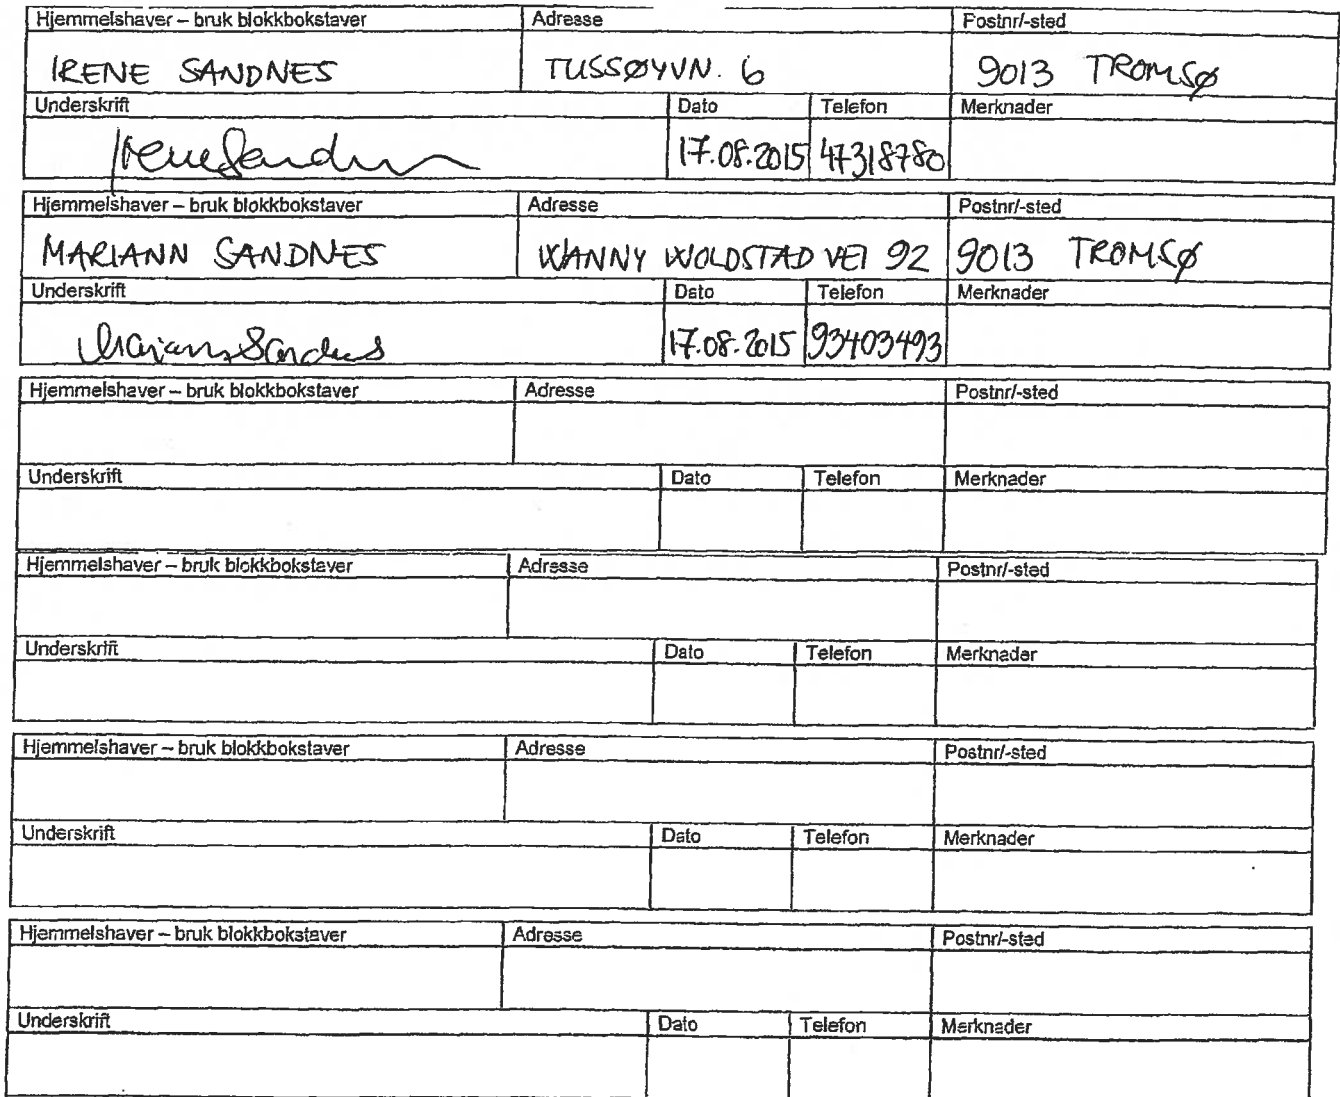 Hjemmelshaver – bruk blokkbokstaver Adresse Postnr/-sted
IRENE SANDNES TUSSØYVN. 6 9013 TROMSØ
Underskrift Dato Telefon Merknader
Irene Sandnes 17.08.2015 47318780
Hjemmelshaver – bruk blokkbokstaver Adresse Postnr/-sted
MARIANN SANDNES WANNY WOLDSTAD VEI 92 9013 TROMSØ
Underskrift Dato Telefon Merknader
Mariann Sandnes 17.08.2015 93403493
Hjemmelshaver – bruk blokkbokstaver Adresse Postnr/-sted
Underskrift Dato Telefon Merknader
Hjemmelshaver – bruk blokkbokstaver Adresse Postnr/-sted
Underskrift Dato Telefon Merknader
Hjemmelshaver – bruk blokkbokstaver Adresse Postnr/-sted
Underskrift Dato Telefon Merknader
Hjemmelshaver – bruk blokkbokstaver Adresse Postnr/-sted
Underskrift Dato Telefon Merknader